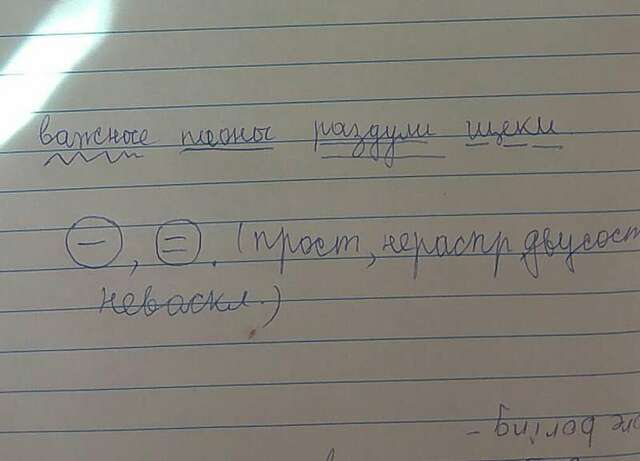 важные пионы раздули щеки
(–), (=). (прост, нераспр, двусост
неваскл.)
re boring -